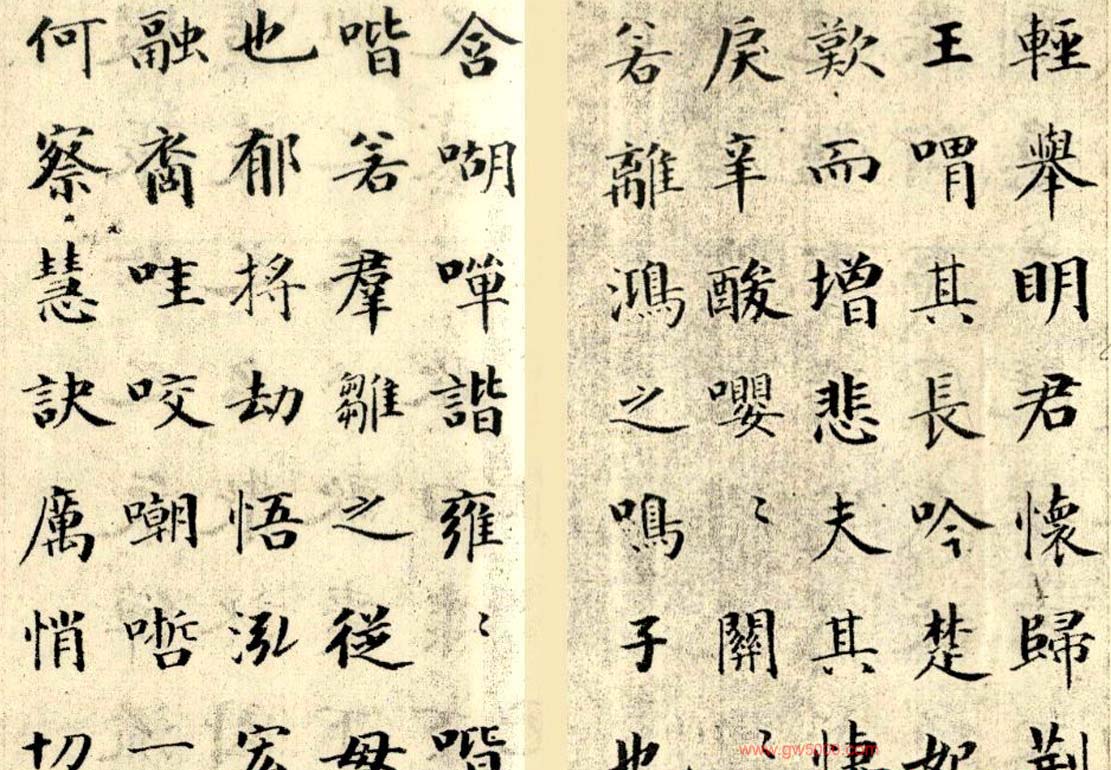 輕舉明君懷歸荊
王喟其長吟楚妃
歎而增悲夫其悽
戾辛酸嚶〻關〻
若離鴻之鳴子也
含喖嘽諧雍〻喈
喈若羣雛之從母
也郁捋劫悟泓宏
融裔哇咬嘲一
何察慧訣厲悄切